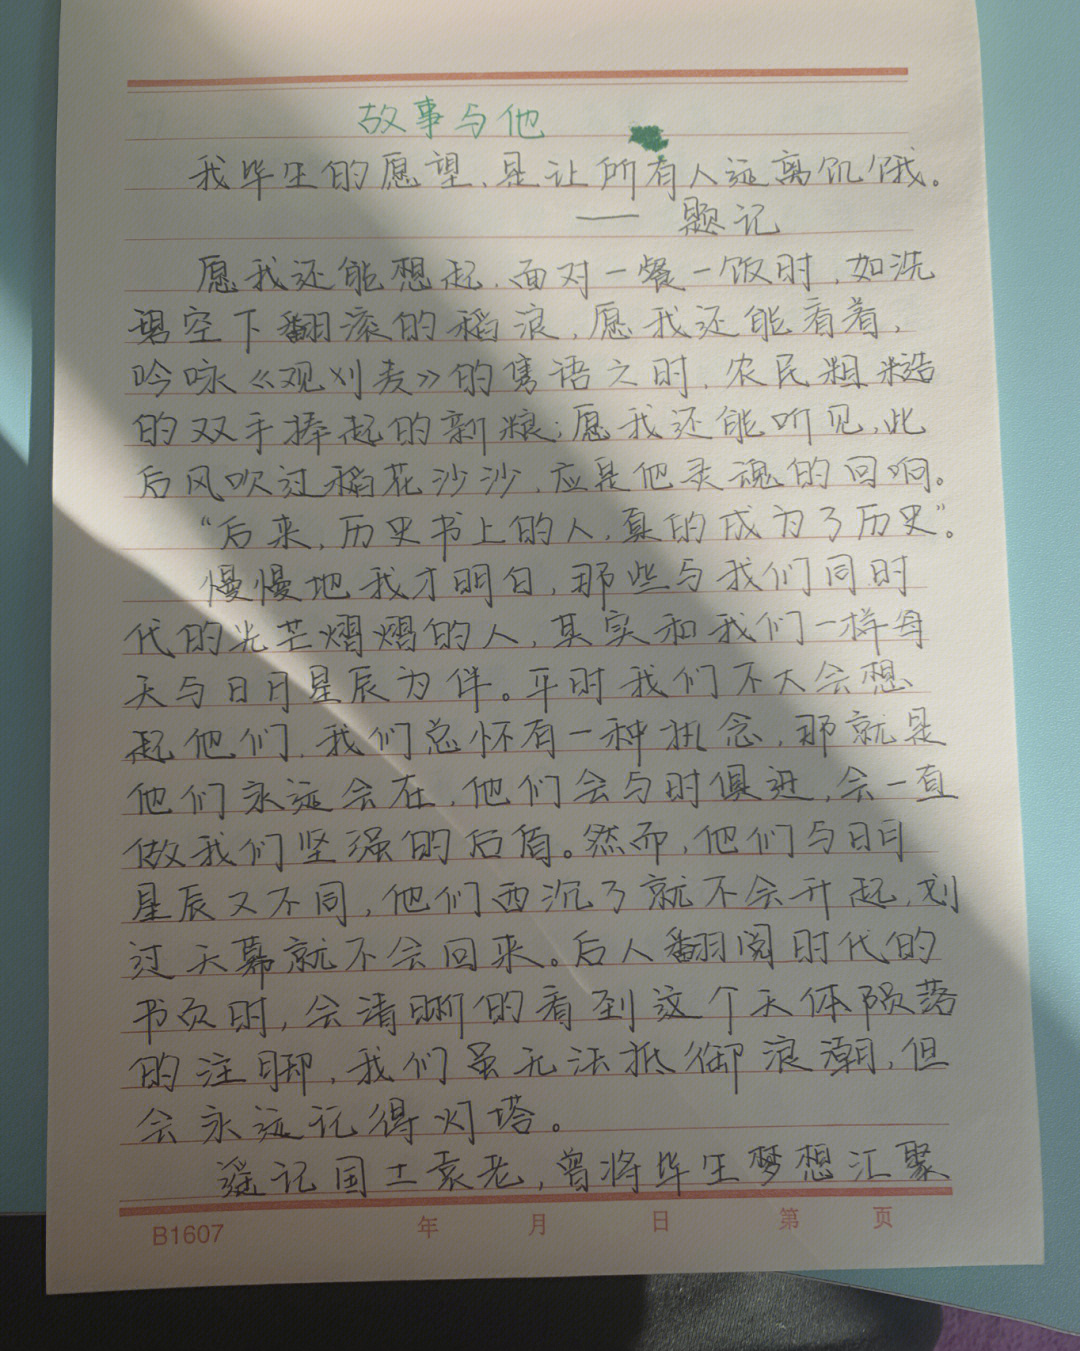 故事与他
我毕生的愿望、是让所有人远离饥饿。
—— 题记
愿我还能想起，面对一餐一饭时，如洗
碧空下翻滚的稻浪，愿我还能看着，
吟咏《观刈麦》的隽语之时，农民粗糙
的双手捧起的新粮；愿我还能听见，此
后风吹过稻花沙沙，应是他灵魂的回响。
“后来，历史书上的人，真的成为了历史”。
慢慢地我才明白，那些与我们同时
代的光芒熠熠的人，其实和我们一样每
天与日月星辰为伴。平时我们不大会想
起他们，我们总怀有一种执念，那就是
他们永远会在，他们会与时俱进，会一直
做我们坚强的后盾。然而，他们与日月
星辰又不同，他们西沉了就不会升起，划
过天幕就不会回来。后人翻阅时代的
书页时，会清晰的看到这个天体陨落
的注脚，我们虽无法抵御浪潮，但
会永远记得灯塔。
遥记国士袁老，曾将毕生梦想汇聚
B1607 年 月 日 第 页